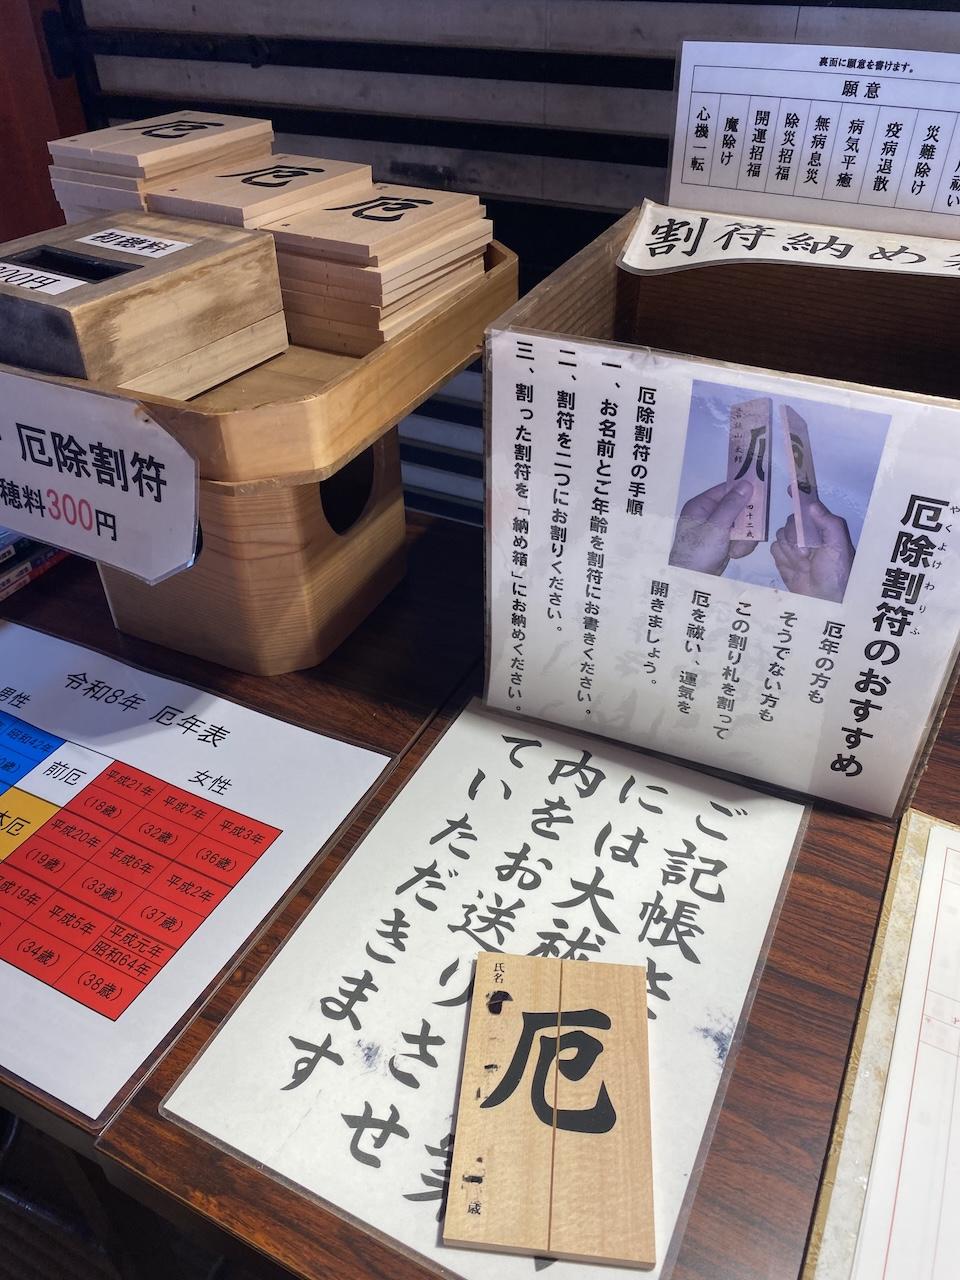 裏面に願意を書けます。
願意
災難除け
疫病退散
病気平癒
無病息災
除災招福
開運招福
魔除け
心機一転
割符納め
厄
厄
厄
初穂料
厄除割符
穂料300円
厄除割符のおすすめ
やくよけわりふ
厄年の方も
そうでない方も
この割り札を割って
厄を祓い、運気を
開きましょう。
厄除割符の手順
一、お名前とご年齢を割符にお書きください。
二、割符を二つにお割りください。
三、割った割符を「納め箱」にお納めください。
四十二歳
令和8年 厄年表
男性
女性
昭和42年
前厄
平成21年
(18歳)
平成7年
(32歳)
平成3年
(36歳)
本厄
平成20年
(19歳)
平成6年
(33歳)
平成2年
(37歳)
平成19年
平成5年
(34歳)
平成元年
昭和64年
(38歳)
ご記帳
には大祓
内をお送りさせ
ていただきます
氏名
厄
歳